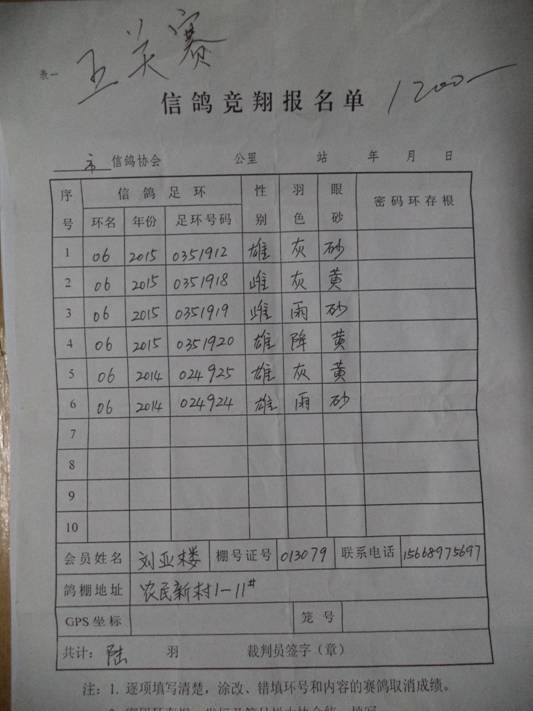 五关赛
表一
信鸽竞翔报名单 1200
市 信鸽协会 公里 站 年 月 日
序号 信鸽足环 性别 羽色 眼砂 密码环存根
环名 年份 足环号码
1 06 2015 0351912 雄 灰 砂
2 06 2015 0351918 雌 灰 黄
3 06 2015 0351919 雌 雨 砂
4 06 2015 0351920 雄 降 黄
5 06 2014 024925 雄 灰 黄
6 06 2014 024924 雄 雨 砂
7
8
9
10
会员姓名 刘亚楼 棚号证号 013079 联系电话 15668975697
鸽棚地址 农民新村1-11#
GPS坐标 笼号
共计: 陆 羽 裁判员签字(章)
注: 1. 逐项填写清楚,涂改、错填环号和内容的赛鸽取消成绩。